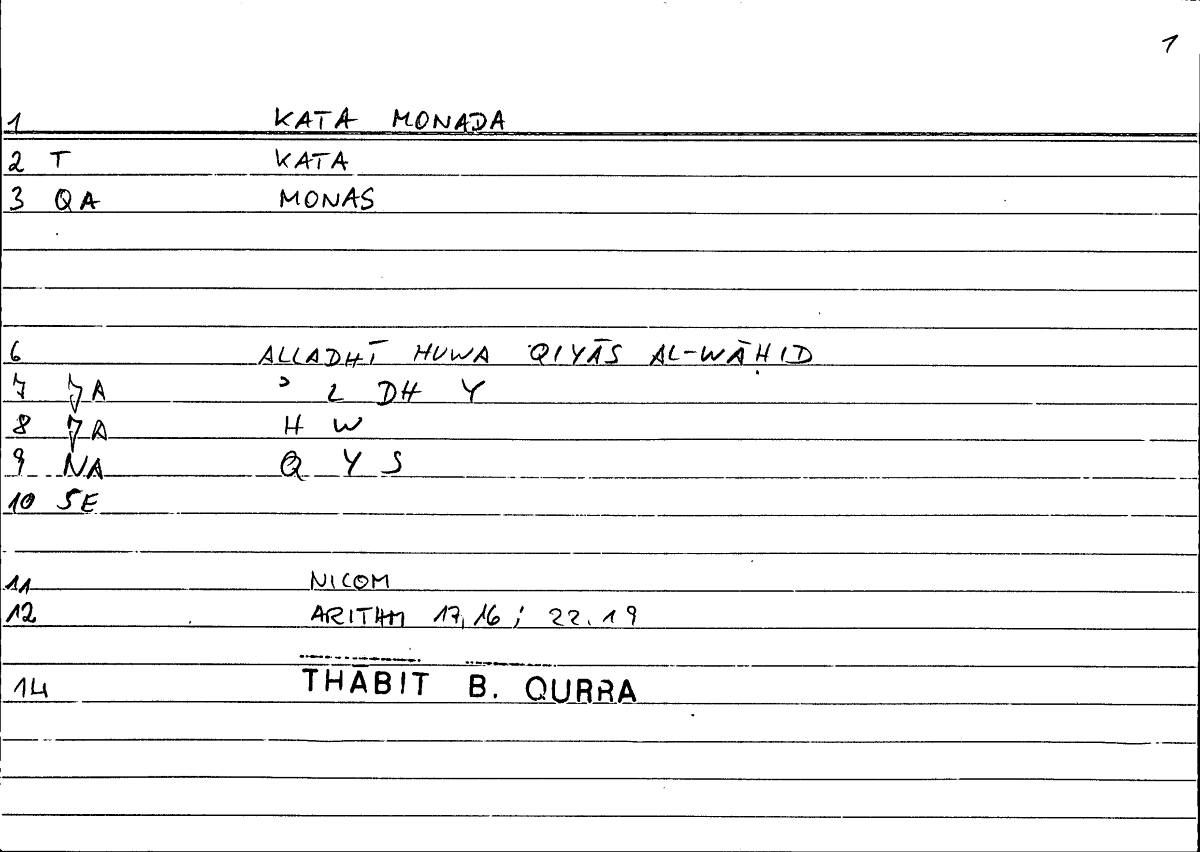 1
1 KATA MONADA
2 T KATA
3 QA MONAS
6 ALLADHĪ HUWA QIYĀS AL-WĀḤID
7 JA ʾ L DH Y
8 JA H W
9 NA Q Y S
10 SE
11 NICOM
12 ARITHM 17,16; 22.19
14 THĀBIT B. QURRA